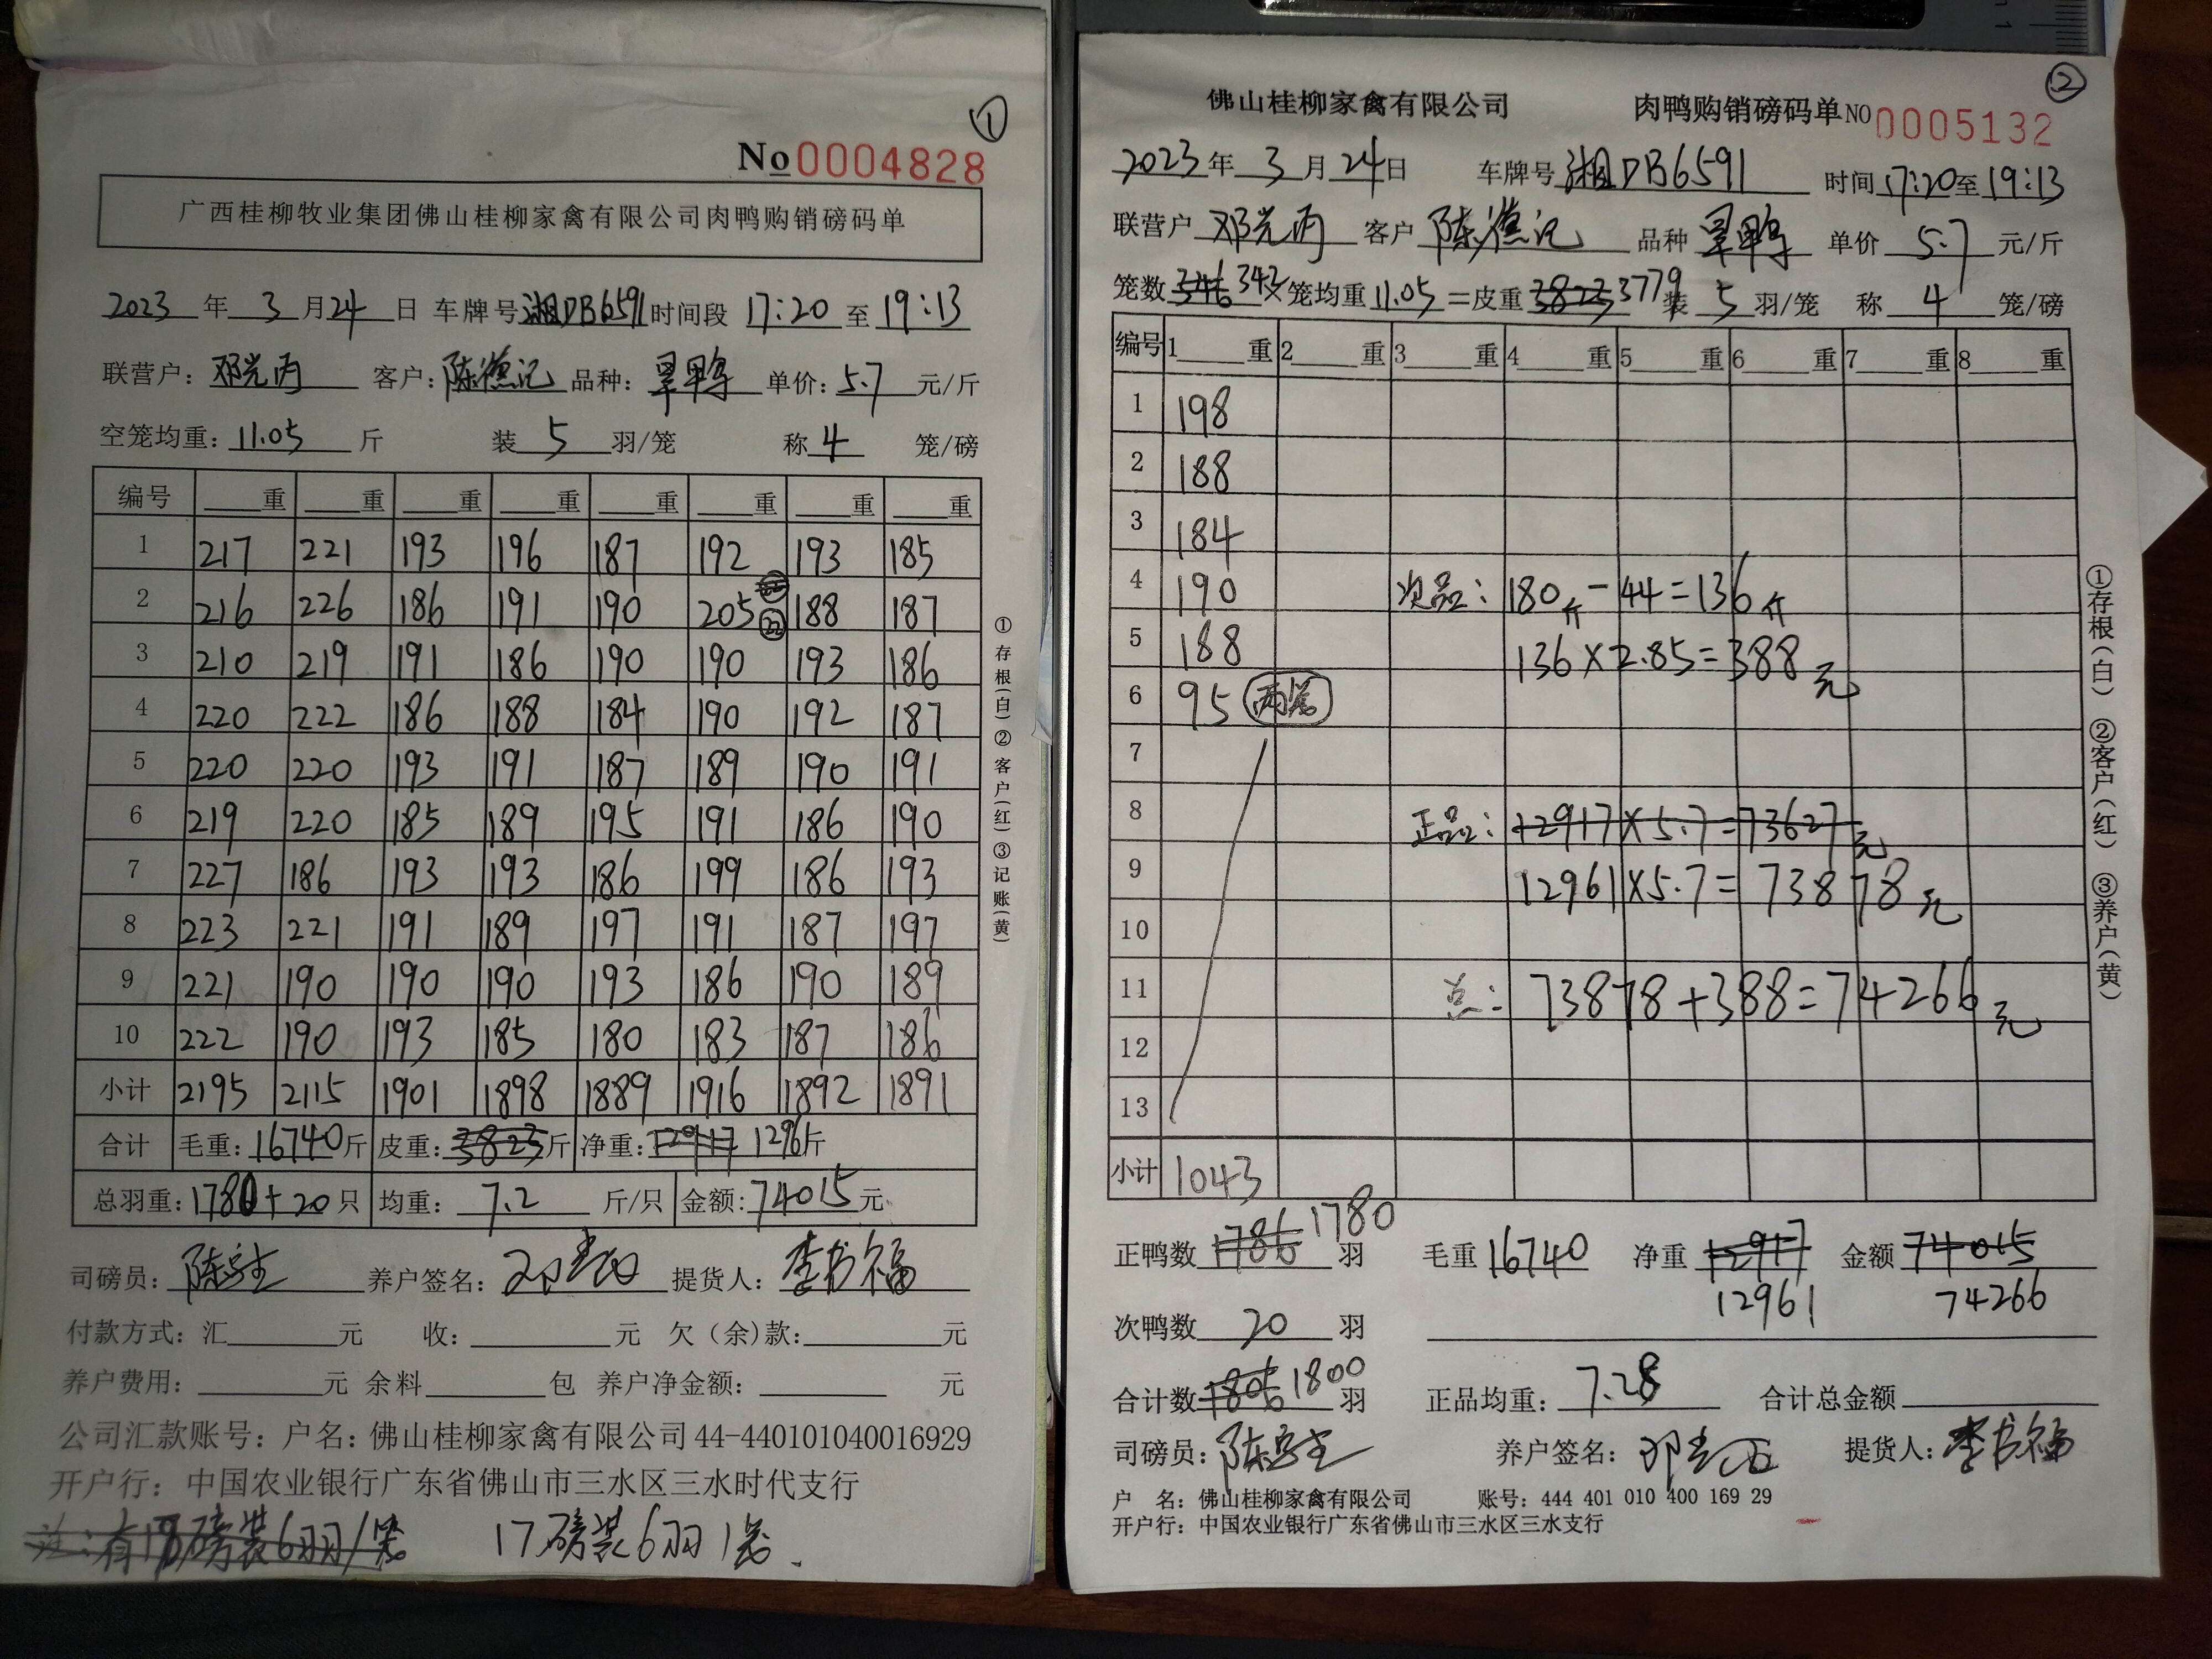 ①
No 0004828
广西桂柳牧业集团佛山桂柳家禽有限公司肉鸭购销磅码单
2023 年 3 月 24 日 车牌号 湘DB6591 时间段 17:20 至 19:13
联营户: 邓光丙 客户: 陈德记 品种: 旱鸭 单价: 5.7 元/斤
空笼均重: 11.05 斤 装 5 羽/笼 称 4 笼/磅
编号 重 重 重 重 重 重 重 重
1 217 221 193 196 187 192 193 185
2 216 226 186 191 190 205 22 188 187
3 210 219 191 186 190 190 193 186
4 220 222 186 188 184 190 192 187
5 220 220 193 191 187 189 190 191
6 219 220 185 189 195 191 186 190
7 227 186 193 193 186 199 186 193
8 223 221 191 189 197 191 187 197
9 221 190 190 190 193 186 190 189
10 222 190 193 185 180 183 187 186
小计 2195 2115 1901 1898 1889 1916 1892 1891
合计 毛重: 16740 斤 皮重: 3823 斤 净重: 12917 1296 斤
总羽重: 1780+20 只 均重: 7.2 斤/只 金额: 74015 元
司磅员: 养户签名: 提货人: 李书福
付款方式: 汇 元 收: 元 欠（余)款: 元
养户费用: 元 余料 包 养户净金额: 元
公司汇款账号: 户名: 佛山桂柳家禽有限公司 44-440101040016929
开户行: 中国农业银行广东省佛山市三水区三水时代支行
注:有17磅装6羽/笼 17磅装6羽1笼.
①存根(白)②客户(红)③记账(黄)
②
佛山桂柳家禽有限公司 肉鸭购销磅码单 NO 0005132
2023 年 3 月 24 日 车牌号 湘DB6591 时间 17:20 至 19:13
联营户 邓光丙 客户 陈德记 品种 旱鸭 单价 5.7 元/斤
笼数 346 342 ×笼均重 11.05 =皮重 3823 3779 装 5 羽/笼 称 4 笼/磅
编号 1 重 2 重 3 重 4 重 5 重 6 重 7 重 8 重
1 198
2 188
3 184
4 190 次品: 180斤-44=136斤
5 188 136×2.85=388元
6 95 两笼
7
8 正品: 12917×5.7=73627元
9 12961×5.7=73878元
10
11 总: 73878+388=74266元
12
13
小计 1043
正鸭数 1786 1780 羽 毛重 16740 净重 12917 金额 74015
12961 74266
次鸭数 20 羽
合计数 1806 1800 羽 正品均重: 7.28 合计总金额
司磅员: 养户签名: 提货人: 李书福
户 名: 佛山桂柳家禽有限公司 账号: 444 401 010 400 169 29
开户行: 中国农业银行广东省佛山市三水区三水支行
①存根(白) ②客户(红) ③养户(黄)